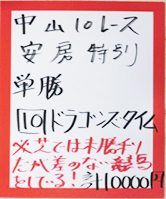 中山10レース
安房特別
単勝
[10]ドラゴンズ・タイム
※芝では未勝利
だが差のない競馬
としている！計10000円